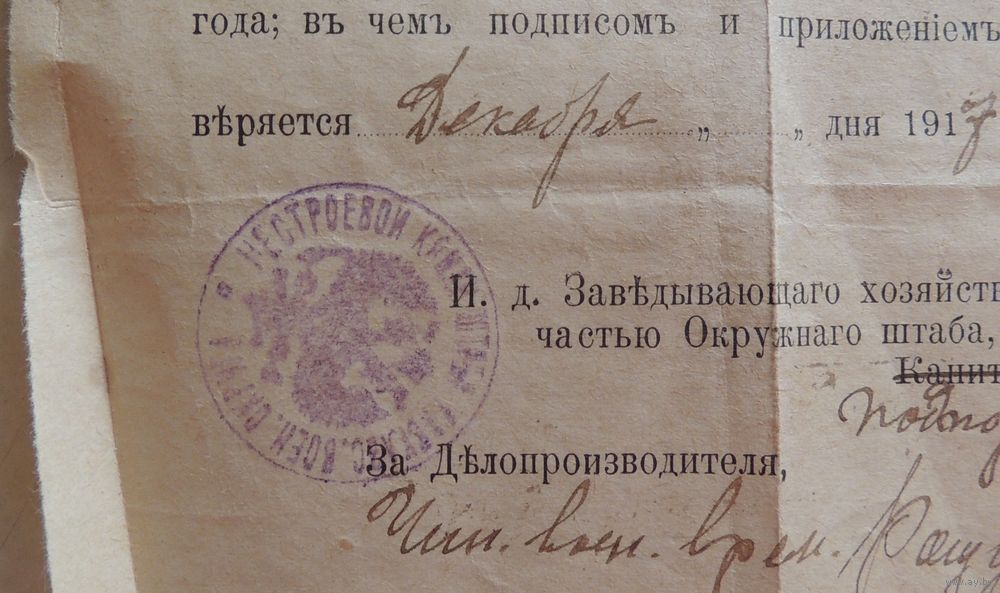 года; въ чемъ подписомъ и приложеніемъ
вѣряется Декабря „ „ дня 1917
НЕСТРОЕВОЙ
ВОЕН. ОКРУГА
И. д. Завѣдывающаго хозяйств
частью Окружнаго штаба,
Капит
подпо
За Дѣлопроизводителя,
Чин. воен. врем.
www.ay.by